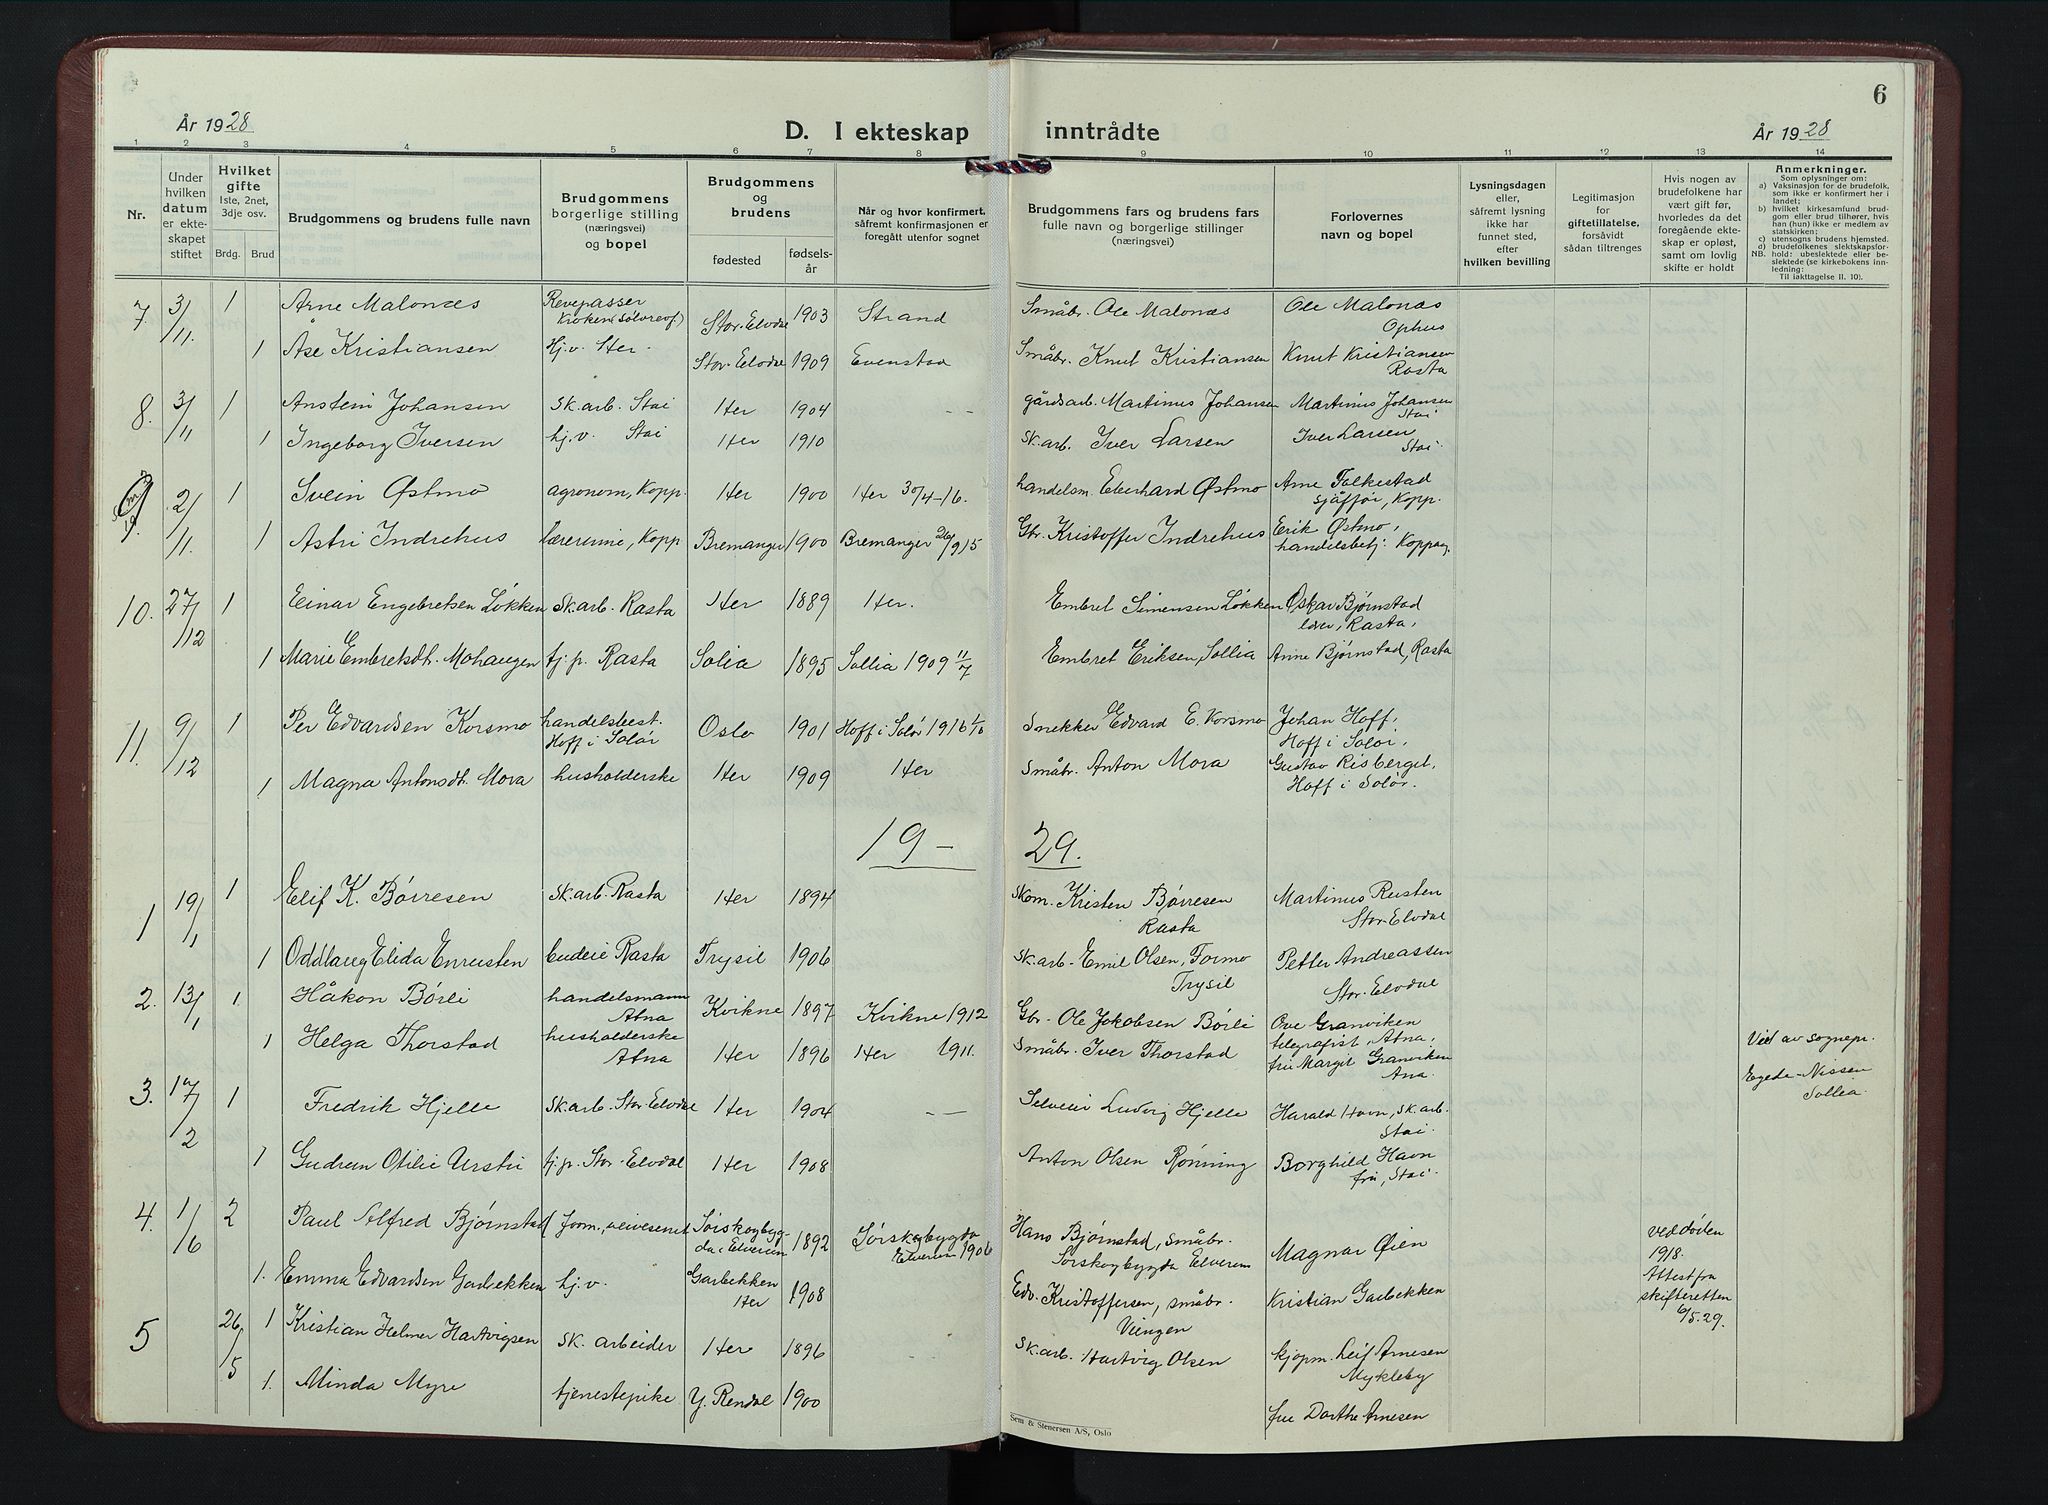 6
År 1928
D. I ekteskap inntrådte
År 1928
1 2 3 4 5 6 7 8 9 10 11 12 13 14
Nr.
Under hvilken datum er ekteskapet stiftet
Hvilket gifte
1ste, 2net, 3dje osv.
Brdg. Brud
Brudgommens og brudens fulle navn
Brudgommens borgerlige stilling (næringsvei) og bopel
Brudgommens og brudens
fødested
fødsels-år
Når og hvor konfirmert, såfremt konfirmasjonen er foregått utenfor sognet
Brudgommens fars og brudens fars fulle navn og borgerlige stillinger (næringsvei)
Forlovernes navn og bopel
Lysningsdagen eller, såfremt lysning ikke har funnet sted, efter hvilken bevilling
Legitimasjon for giftetillatelse, forsåvidt sådan tiltrenges
Hvis nogen av brudefolkene har vært gift før, hvorledes da det foregående ekteskap er opløst, samt om lovlig skifte er holdt
Anmerkninger.
Som oplysninger om:
a) Vaksinasjon for de brudefolk, som ikke er konfirmert her i landet;
b) hvilket kirkesamfund brudgom eller brud tilhører, hvis han (hun) ikke er medlem av statskirken;
c) utensogns brudens hjemsted.
d) brudefolkenes slektskapsforhold: ubeslektede eller beslektede (se kirkebokens innledning:
NB.
Til iakttagelse II. 10).
7. 3/11. 1 Arne Malonæs Revepasser Kroken (Sølvrevf.) Stor-Elvdal 1903 Strand Småbr. Ole Malonæs Ole Malonæs Ophus
1 Åse Kristiansen Hj.v. Her. Stor-Elvdal 1909 Evenstad Småbr. Knut Kristiansen Knut Kristiansen Rasta
8. 3/11 1 Anstein Johansen Sk.arb. Stai Her 1904 - - gårdsarb. Martinus Johansen Martinus Johansen Stai
1 Ingeborg Iversen hj.v. Stai Her 1910 Sk.arb. Iver Larsen Iver Larsen Stai
9 2/11. 1 Svein Østmo agronom, Kopp. Her 1900 Her 30/4-16. handelsm. Eberhard Østmo Arne Folkestad sjåffør, Kopp.
1 Astri Indrehus lærerinne, Kopp Bremanger 1900 Bremanger 26/9 15 Gbr. Kristoffer Indrehus Erik Østmo, handelsbetj. Koppang
10. 27/12 1 Einar Engebretsen Løkken Sk.arb. Rasta Her 1889 Her. Embret Simensen Løkken Oskar Bjørnstad lærer, Rasta,
1 Marie Embretsdt. Mohaugen tj.p. Rasta Solia 1895 Sollia 1909 11/7 Embret Eriksen, Sollia Anne Bjørnstad, Rasta
11. 9/12 1 Per Edvardsen Korsmo handelsbest. Hoff i Solør Oslo 1901 Hoff i Solør 1916 Snekker Edvard E. Korsmo Johan Hoff, Hoff i Solør,
1 Magna Antonsdt. Mora husholderske Her 1909 Her Småbr. Anton Mora Gustav Risberget, Hoff i Solør.
19 - 29.
1 19/1 1 Elif K. Børresen Sk.arb. Rasta Her 1894 Skom. Kristen Børresen Rasta Martinus Rusten Stor-Elvdal
1 Oddlaug Elida Enrusten budeie Rasta Trysil 1906 Sk.arb. Emil Olsen, Formo Trysil Petter Andreassen Stor-Elvdal
2. 13/1 1 Håkon Børli handelsmann Atna Kvikne 1897 Kvikne 1912 Gbr. Ole Jakobsen Børli Ove Granviken telegrafist, Atna,
1 Helga Thorstad husholderske Atna Her 1896 Her 1911. Småbr. Iver Thorstad fru Margit Granviken Atna. Viet av sognepr. Egede-Nissen Sollia.
3. 17/2 1 Fredrik Hjelle Sk.arb. Stor-Elvdal Her 1904 - - Selveier Ludvig Hjelle Harald Havn, sk.arb. Stai.
1 Gudrun Otilie Urstri tj.p. Stor-Elvdal Her 1908 Anton Olsen Rønning Borghild Havn fru, Stai.
4. 1/6 2 Paul Alfred Bjørnstad form., veivesenet Sørskogbygda i Elverum 1892 Sørskogbygda Elverum 1906 Hans Bjørnstad, småbr. Sørskogbygda Elverum Magnar Øien ved døden 1918. Attest fra skifteretten 6/5.29.
1. Emma Edvardsen Garbekken hj.v. Garbekken Her 1908 Edv. Kristoffersen, småbr. Vingen Kristian Garbekken
5 26/5 1 Kristian Helmer Hartvigsen Sk. arbeider Her 1896 Sk.arb. Hartvig Olsen kjøpm. Leif Arnesen Mykleby
1. Minda Myre tjenestepike Y. Rendal 1900 fru Dorthe Arnesen
Sem & Stenersen A/S, Oslo